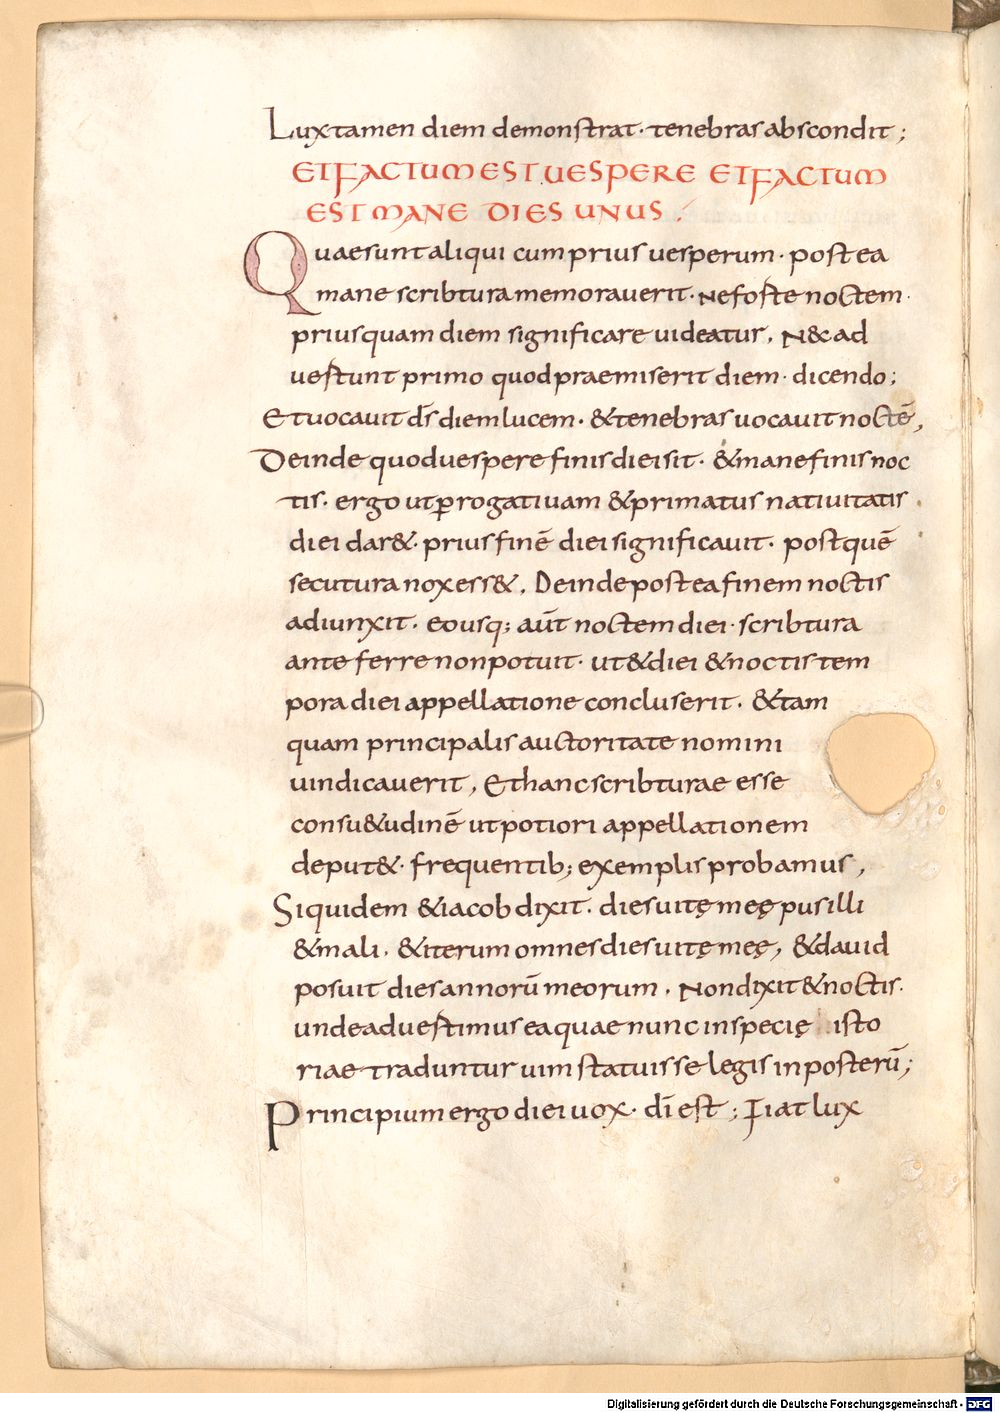 Lux tamen diem demonstrat· tenebras abscondit;
ET FACTUM EST UESPERE ET FACTUM
EST MANE DIES UNUS.
Quaesunt aliqui cum prius uesperum· postea
mane scribtura memorauerit· Ne foste noctem·
priusquam diem significare uideatur. N& ad
uestunt primo quod praemiserit diem· dicendo;
Et uocauit dŝ diem lucem· & tenebras uocauit noctē,
Deinde quod uespere finis diei sit· & mane finis noc
tis· ergo ut p̱rogatiuam & primatus natiuitatis
diei dar&· prius finē diei significauit· post quē
secutura nox ess&. Deinde postea finem noctis
adiunxit· eousq; aūt noctem diei· scribtura
ante ferre non potuit· ut & diei & noctis tem
pora diei appellatione concluserit· & tam
quam principalis auctoritate nomini
uindicauerit, Et hanc scribturae esse
consu&udinē ut potiori appellationem
deput&· frequentib; exemplis probamus,
Siquidem & iacob dixit· dies uitę meę pusilli
& mali· & iterum omnes dies uitę meę, & dauid
posuit dies annorū meorum· Non dixit & noctis·
unde aduestimus ea quae nunc in specię isto
riae traduntur uim statuisse legis in posterū;
Principium ergo diei uox· dī est; Fiat lux
Digitalisierung gefördert durch die Deutsche Forschungsgemeinschaft - DFG